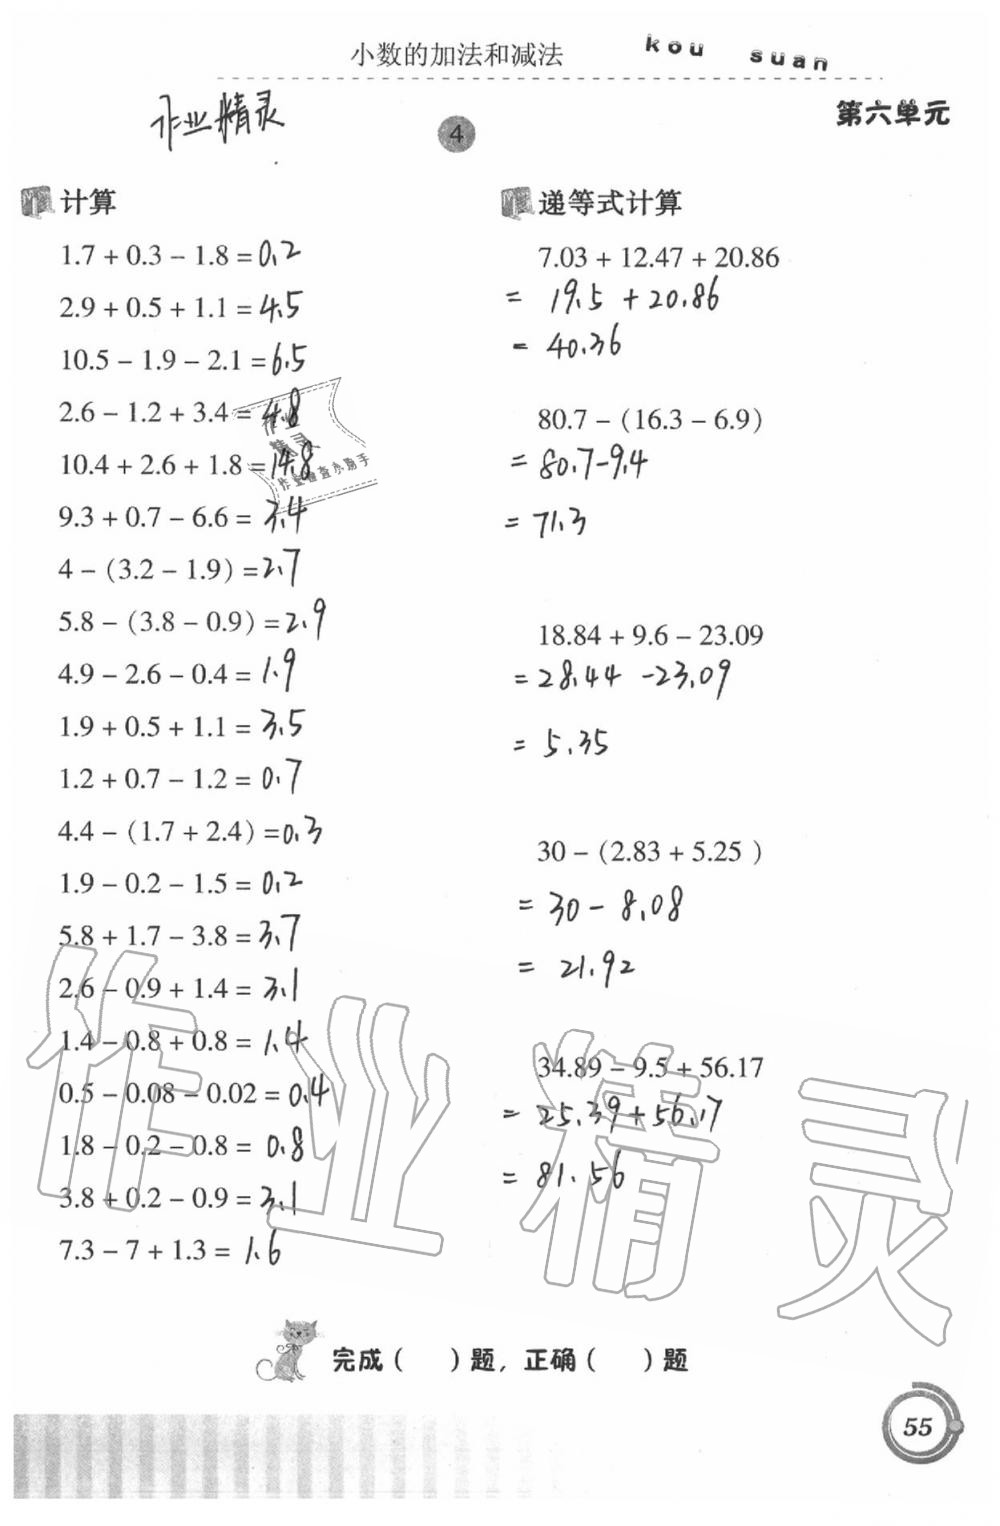 小数的加法和减法 kou suan
第六单元
作业精灵
4
计算
1.7 + 0.3 − 1.8 = 0.2
2.9 + 0.5 + 1.1 = 4.5
10.5 − 1.9 − 2.1 = 6.5
2.6 − 1.2 + 3.4 = 4.8
10.4 + 2.6 + 1.8 = 14.8
9.3 + 0.7 − 6.6 = 3.4
4 − (3.2 − 1.9) = 2.7
5.8 − (3.8 − 0.9) = 2.9
4.9 − 2.6 − 0.4 = 1.9
1.9 + 0.5 + 1.1 = 3.5
1.2 + 0.7 − 1.2 = 0.7
4.4 − (1.7 + 2.4) = 0.3
1.9 − 0.2 − 1.5 = 0.2
5.8 + 1.7 − 3.8 = 3.7
2.6 − 0.9 + 1.4 = 3.1
1.4 − 0.8 + 0.8 = 1.4
0.5 − 0.08 − 0.02 = 0.4
1.8 − 0.2 − 0.8 = 0.8
3.8 + 0.2 − 0.9 = 3.1
7.3 − 7 + 1.3 = 1.6
递等式计算
7.03 + 12.47 + 20.86
= 19.5 + 20.86
= 40.36
80.7 − (16.3 − 6.9)
= 80.7 − 9.4
= 71.3
18.84 + 9.6 − 23.09
= 28.44 − 23.09
= 5.35
30 − (2.83 + 5.25)
= 30 − 8.08
= 21.92
34.89 − 9.5 + 56.17
= 25.39 + 56.17
= 81.56
作业
精灵
作业精灵
完成（ ）题，正确（ ）题
55